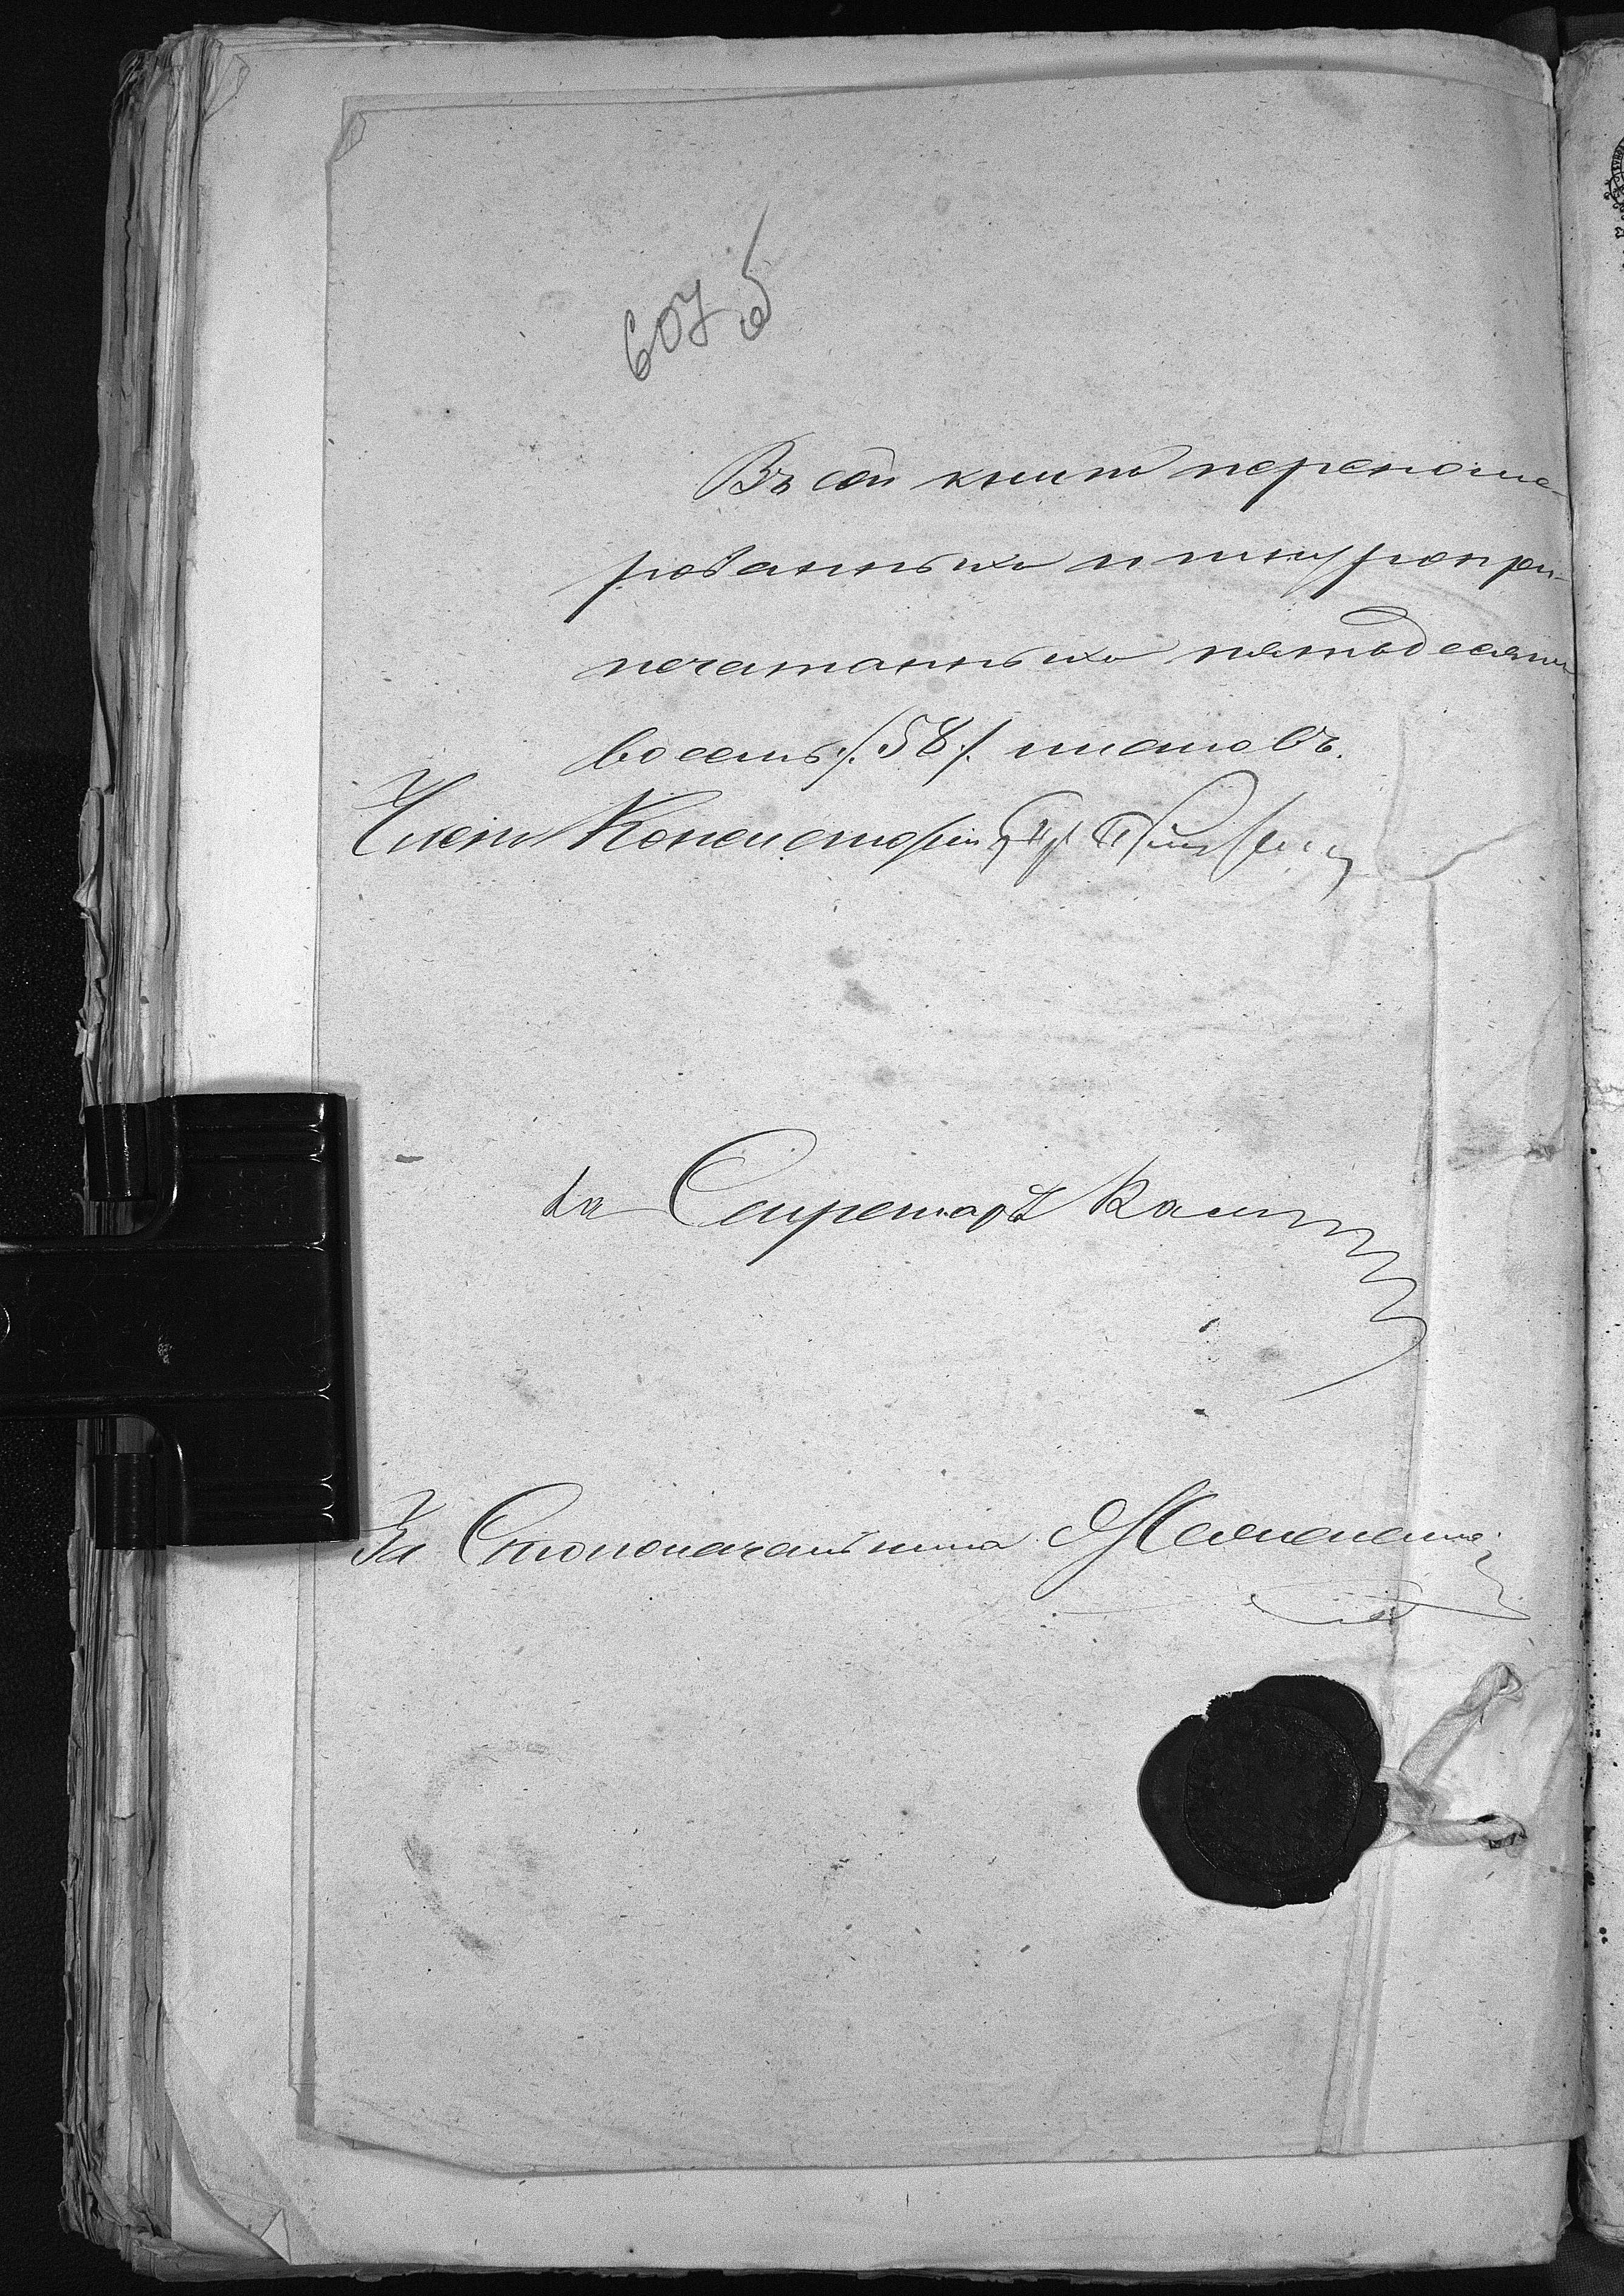 607 б
Въ сей книгѣ перенуме-
рованныхъ и шнуропри-
печатанныхъ пятьдесятъ
восемь /:58:/ листовъ.
Членъ Консисторіи
За Секретаря
За Столоначальника